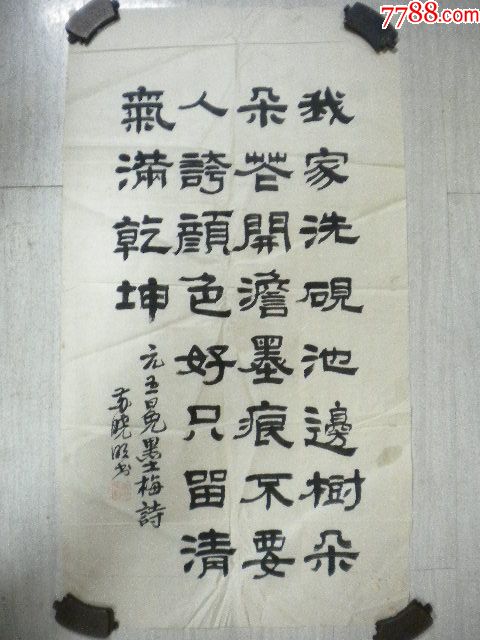 7788.com
我家洗硯池邊樹朵
朵花開澹墨痕不要
人誇顔色好只留清
氣滿乾坤
元王冕墨梅詩
苏晓明书